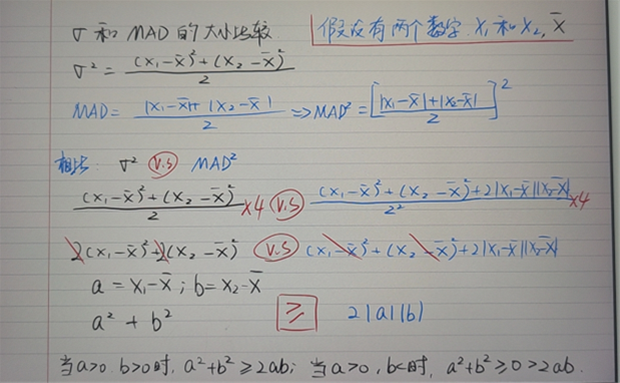 σ 和 MAD 的大小比较
假设有两个数字 X₁ 和 X₂, X̄
σ² = ((X₁-X̄)²+(X₂-X̄)²)/2
MAD = (|X₁-X̄|+|X₂-X̄|)/2 => MAD² = [(|X₁-X̄|+|X₂-X̄|)/2]²
相比: σ² V.S MAD²
((X₁-X̄)²+(X₂-X̄)²)/2 ×4 V.S ((X₁-X̄)²+(X₂-X̄)²+2|X₁-X̄||X₂-X̄|)/2² ×4
2(X₁-X̄)²+2(X₂-X̄)² V.S (X₁-X̄)²+(X₂-X̄)²+2|X₁-X̄||X₂-X̄|
a = X₁-X̄ ; b = X₂-X̄
a² + b² ≥ 2|a||b|
当a>0 b>0时, a²+b² ≥ 2ab; 当a>0, b<时, a²+b² ≥ 0 > 2ab.